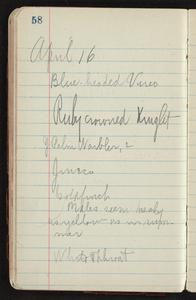 58
April 16
Blue-headed Vireo
Ruby crowned Kinglet
Y Palm Warbler, 2
Junco
Goldfinch
Males seem nearly
as yellow as in sum
mer
White throat